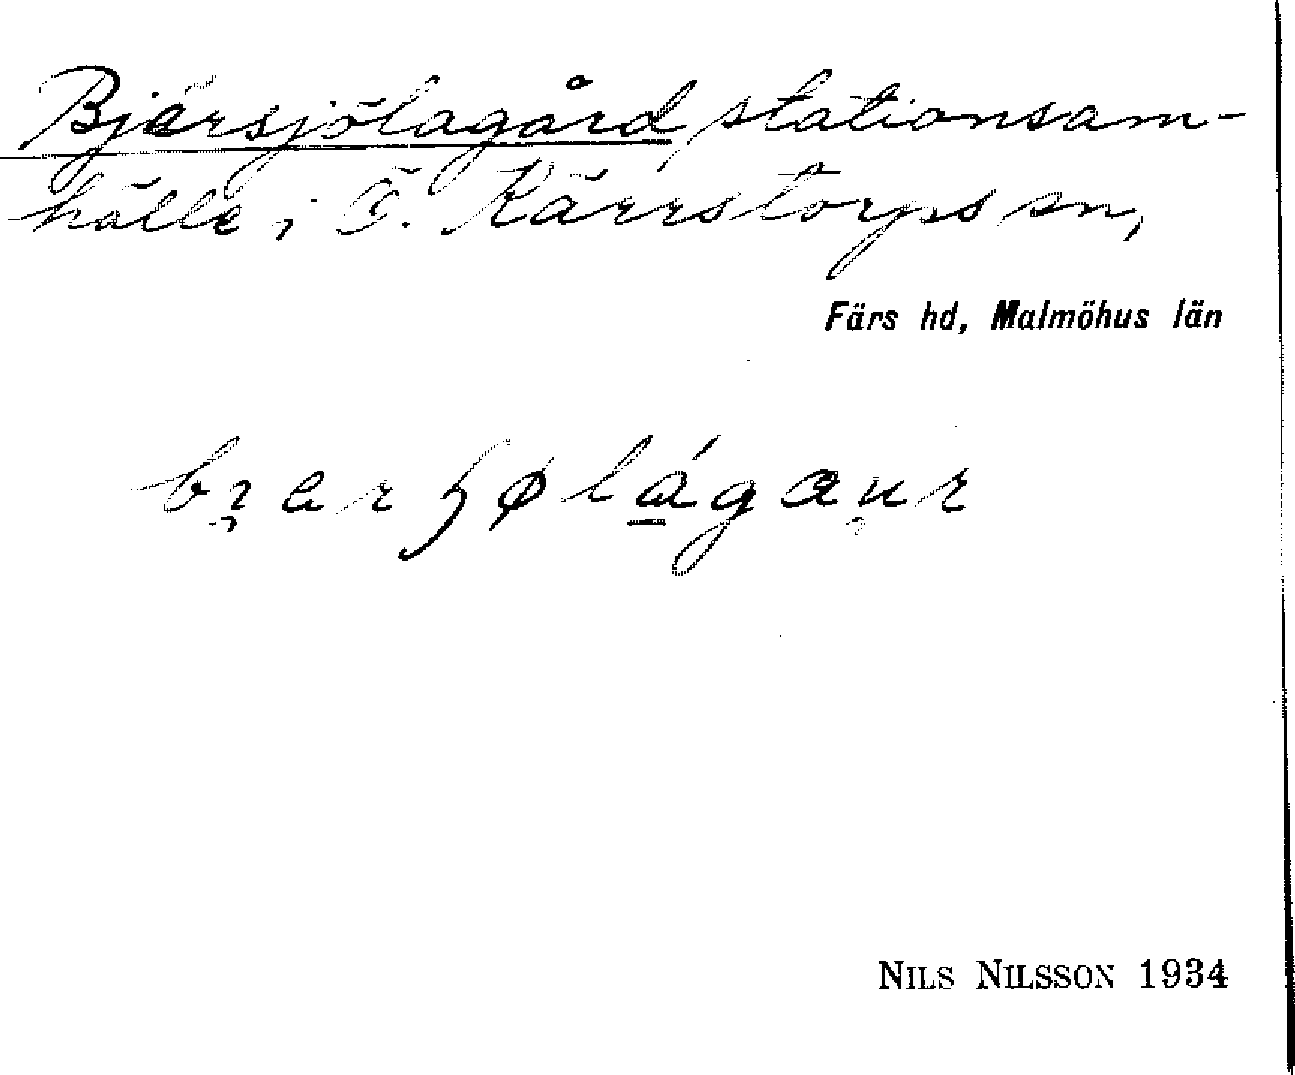 Bjärsjölagård, stationsam-
hälle i Ö. Kärrstorps sn,
Färs hd, Malmöhus län
NILS NILSSON 1934